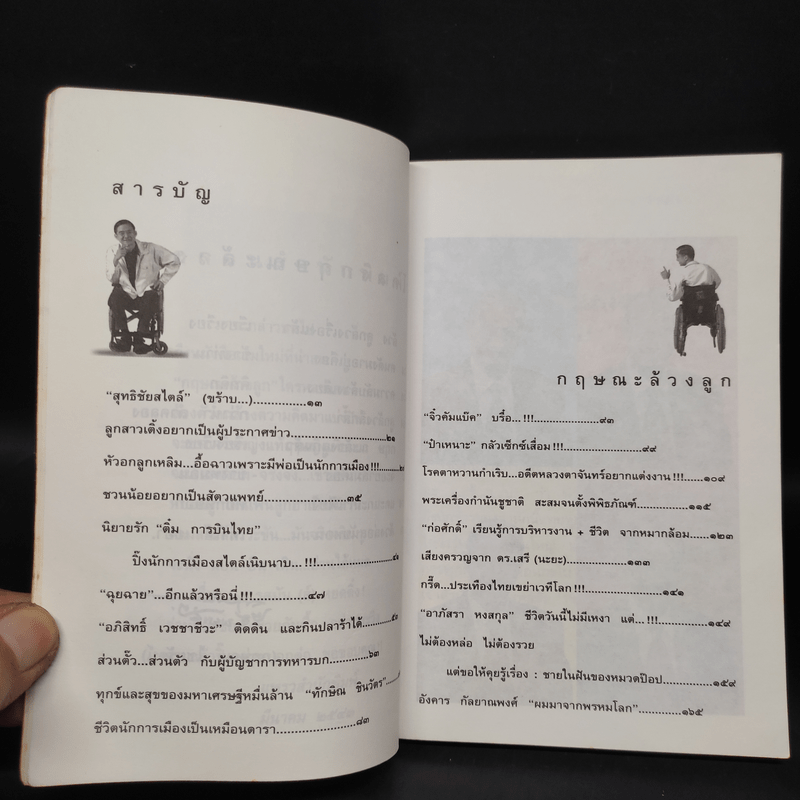 สารบัญ
"สุทธิชัยสไตล์" (ขร้าบ...)...................๑๓
ลูกสาวเติ้งอยากเป็นผู้ประกาศข่าว...................๒๑
หัวอกลูกเหลิม...อื้อฉาวเพราะมีพ่อเป็นนักการเมือง!!!...........
ชวนน้อยอยากเป็นสัตวแพทย์...................๓๕
นิยายรัก "ติ๋ม การบินไทย"
ปิ๊งนักการเมืองสไตล์เนิบนาบ...!!!...................
"ฉุยฉาย"...อีกแล้วหรือนี่!!!...............๔๗
"อภิสิทธิ์ เวชชาชีวะ" ติดดิน และกินปลาร้าได้...........
ส่วนตั๊ว...ส่วนตัว กับผู้บัญชาการทหารบก...........๖๓
ทุกข์และสุขของมหาเศรษฐีหมื่นล้าน "ทักษิณ ชินวัตร"........
ชีวิตนักการเมืองเป็นเหมือนดารา...................๘๓
กฤษณะล้วงลูก
"จิ๋วคัมแบ๊ค" บรื๋อ...!!!...................๙๓
"ป๋าเหนาะ" กลัวเซ็กซ์เสื่อม!!!...................๙๙
โรคตาหวานกำเริบ...อดีตหลวงตาจันทร์อยากแต่งงาน!!!......๑๐๙
พระเครื่องกำนันชูชาติ สะสมจนตั้งพิพิธภัณฑ์...............๑๑๕
"ก่อศักดิ์" เรียนรู้การบริหารงาน + ชีวิต จากหมากล้อม......๑๒๓
เสียงครวญจาก ดร.เสรี (นะยะ)...................๑๓๓
กรี๊ด...ประเทืองไทยเขย่าเวทีโลก!!!...................๑๔๑
"อาภัสรา หงสกุล" ชีวิตวันนี้ไม่มีเหงา แต่...!!!...........๑๔๙
ไม่ต้องหล่อ ไม่ต้องรวย
แต่ขอให้คุยรู้เรื่อง : ชายในฝันของหมวดป๊อป...............๑๕๙
อังคาร กัลยาณพงศ์ "ผมมาจากพรหมโลก"...............๑๖๕